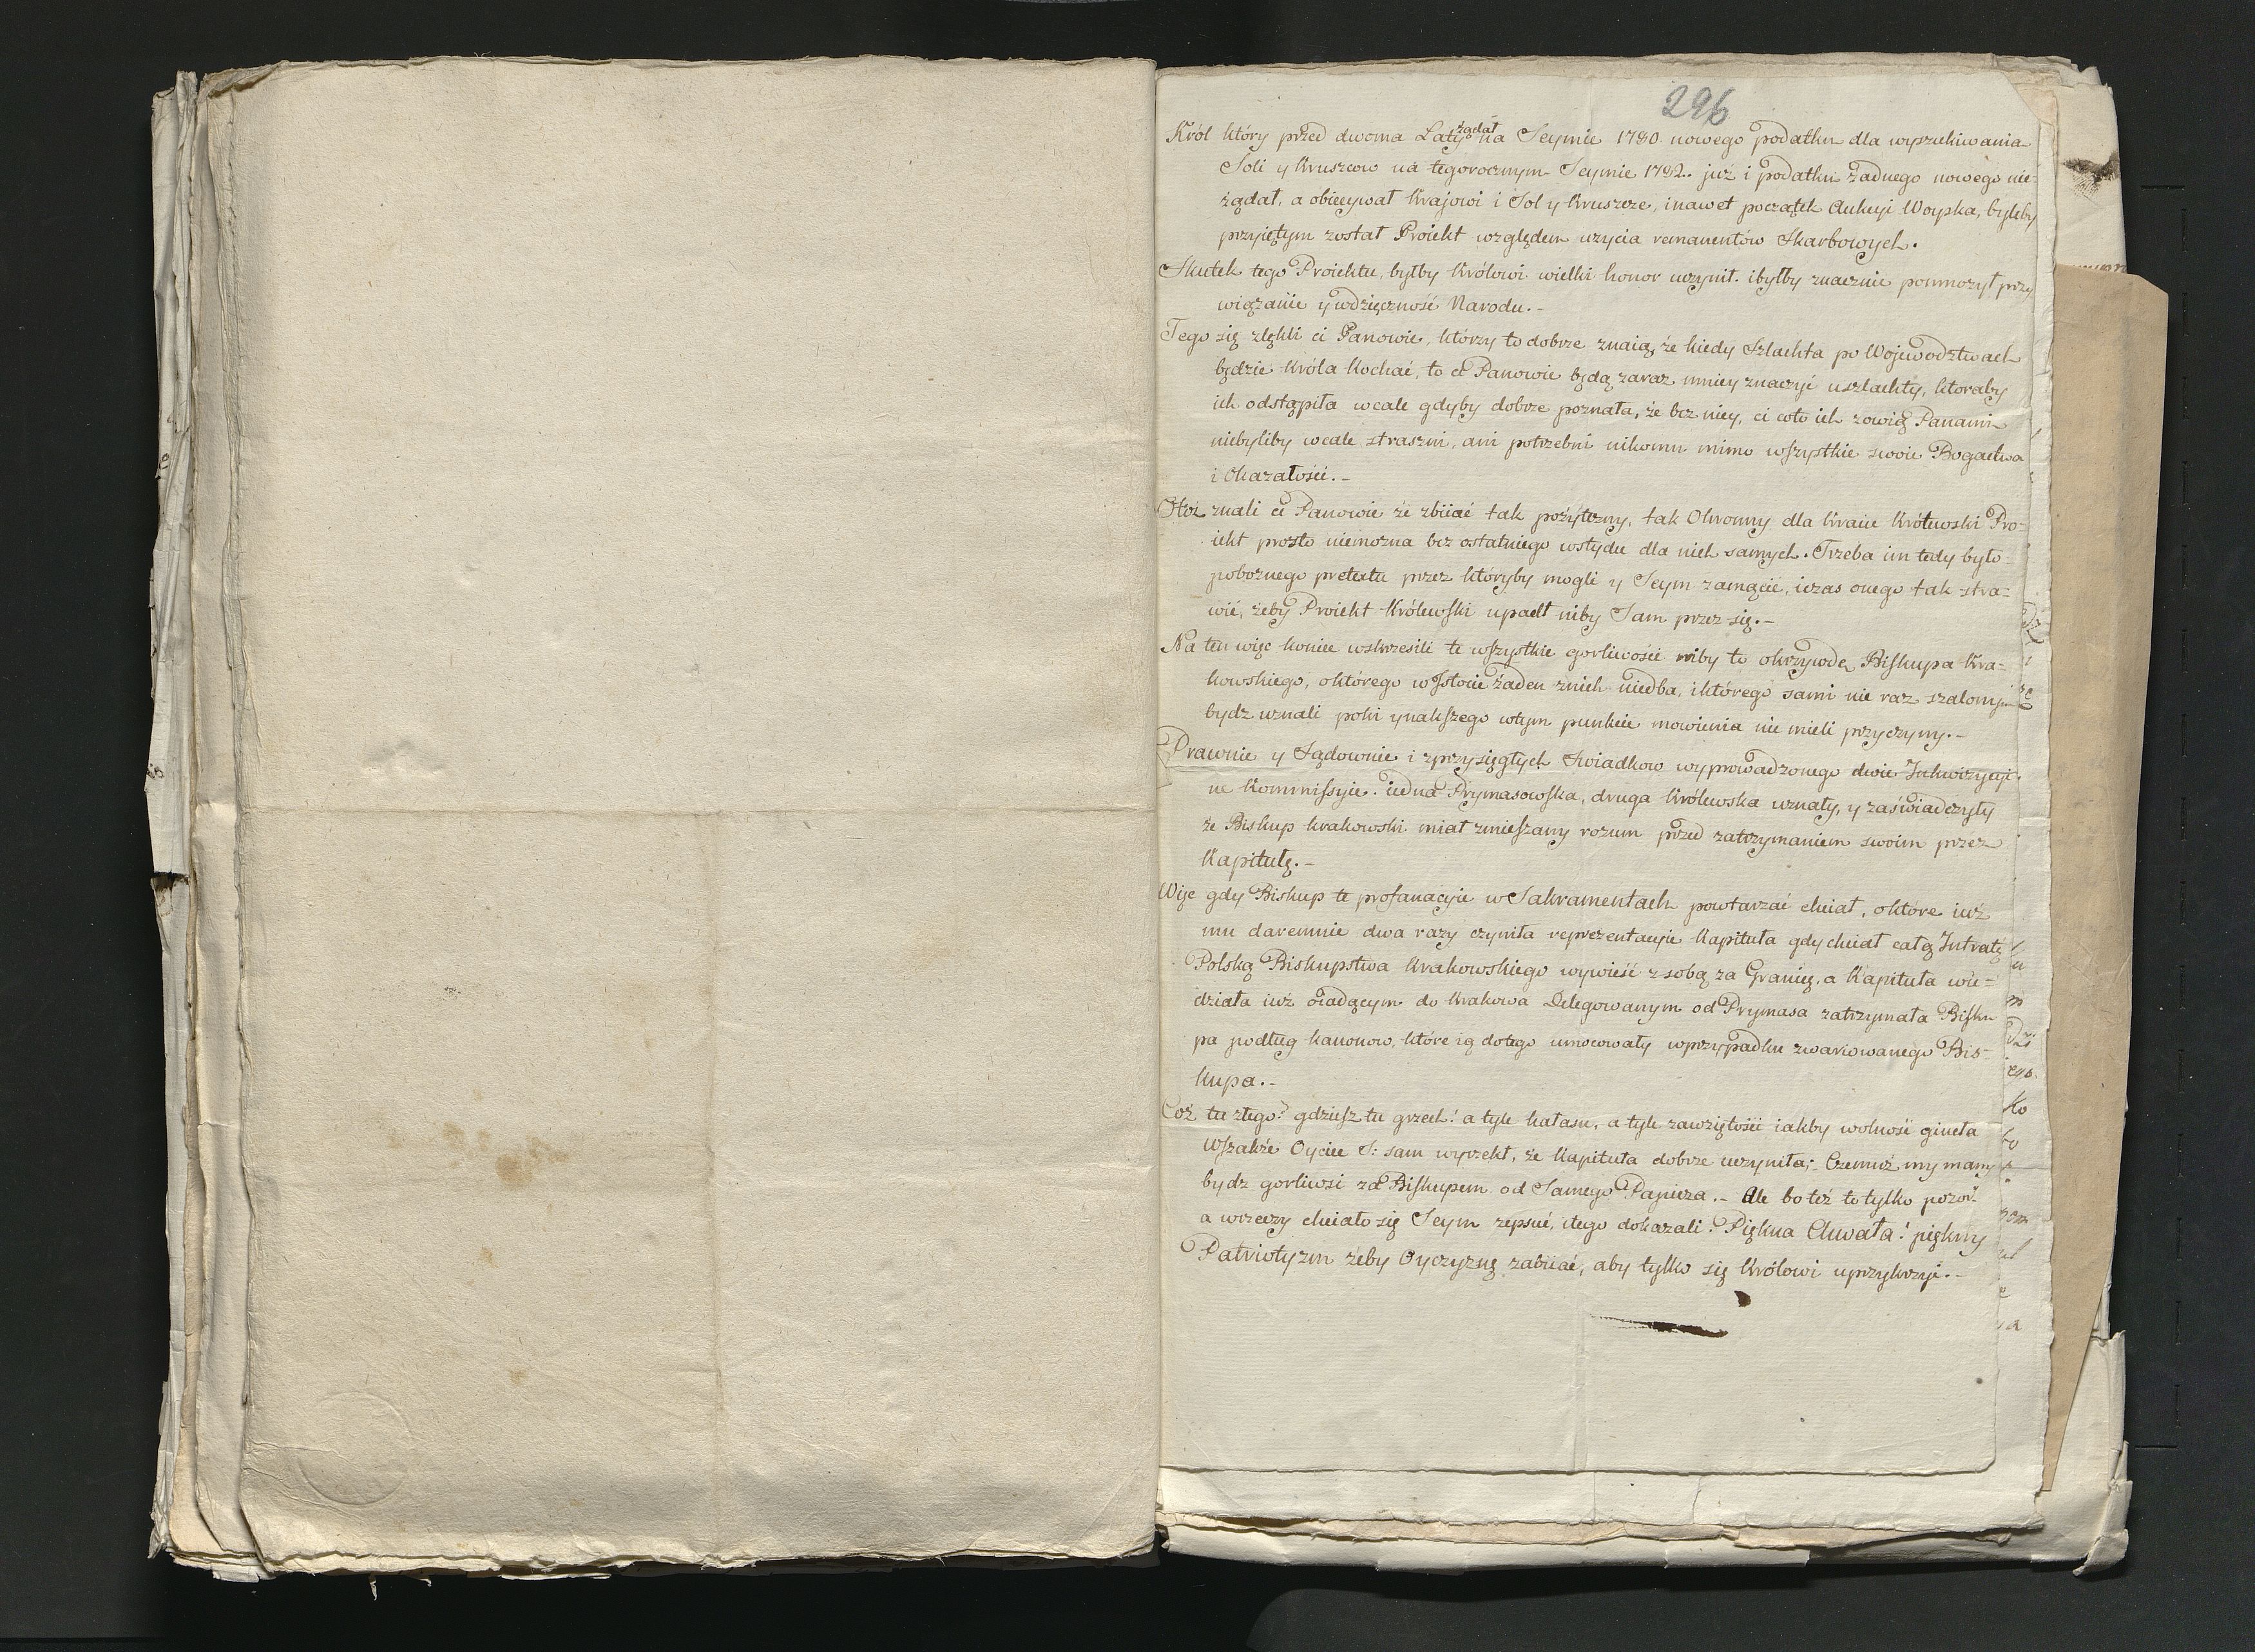 296
Król który przed dwoma Laty żądał na Seymie 1780 nowego podatku dla wyszukiwania
Soli y Kruszcow na tegorocznym Seymie 1782. już i podatku żadnego nowego nie-
żądał, a obiecywał Krajowi i Sol y Kruszcze, i nawet początek Aukcyi Woyska, byleby
przyiętym został Proiekt względem użycia remanentów Skarbowych.
Skutek tego Proiektu, byłby Królowi wielki honor uczynił. i byłby znacznie pomnożył przy
wiązanie y wdzięczność Narodu.-
Tego się zlękli ci Panowie, którzy to dobrze znaią, że kiedy Szlachta po Województwach
będzie Króla Kochać, to ci Panowie będą zaraz mniey znaczyć u szlachty, ktoraby
ich odstąpiła wcale gdyby dobrze poznała, że bez niey, ci coto ich zowią Panami
niebyliby wcale straszni, ani potrzebni nikomu mimo wszystkie swoie Bogactwa
i Okazałości.-
Otóż znali ci Panowie że zbiiać tak pożyteczny, tak Ohronny dla Kraiu Królewski Pro-
iekt prosto niemożna bez ostatniego wstydu dla nich samych. Trzeba im tedy było
pobożnego pretextu przez któryby mogli y Seym zamącić, i czas onego tak stra-
wić, żeby Proiekt Królewski upadł niby Sam przez się.-
Na ten więc koniec wskrzesili te wszystkie gorliwości niby to okrzywdę Biskupa Kra-
kowskiego, októrego w Istocie żaden znich niedba, i którego sami nie raz szalonym
bydz uznali poki ynakszego wtym punkcie mowienia nie mieli przyczyny.-
Prawnie y Sądownie i zprzysięgłych Swiadkow wyprowadzonego dwie Inkwizycyi-
ne Kommissyie. iedna Prymasowska, druga Królewska uznały, y zaświadczyły
że Biskup krakowski miał zmieszany rozum przed zatrzymaniem swoim przez
Kapitułę.-
Więc gdy Biskup te profanacyie w Sakramentach powtarzać chciał, októre iuż
mu daremnie dwa razy czyniła reprezentacyie Kapituła gdy chciał całą Intratę
Polską Biskupstwa Krakowskiego wywieść z sobą za Granicę, a Kapituła wie-
działa iuż oiadącym do Krakowa Delegowanym od Prymasa zatrzymała Bisku
pa podług kanonow, które ią dotego umocowały wprzypadku zwariowanego Bis-
kupa.-
Coż tu złego? gdziesz tu grzech! a tyle hałasu, a tyle zawziętości iakby wolność gineła
Wszakże Oyciec S: sam wyrzekł, że Kapituła dobrze uczyniła; Czemuż my mamy
bydz gorliwsi za Biskupem od Samego Papieża.- Ale bo też to tylko pozor.
a wrzeczy chciało się Seym zepsuć, i tego dokazali. Piękna Chwała! piękny
Patriotyzm żeby Oyczyznę zabiiać, aby tylko się Królowi uprzykrzyć.-